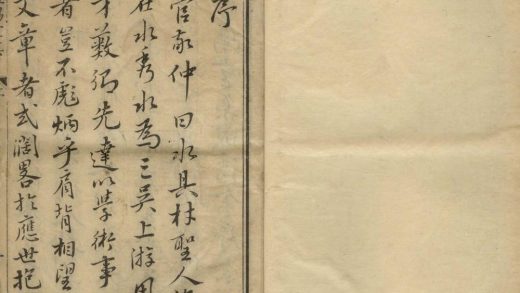 序
官敬仲曰水具材聖人
在水秀水為三吳上游
才藪鄉先達以學術事
者豈不彪炳乎肩背相望
文章者或闊畧於應世抱